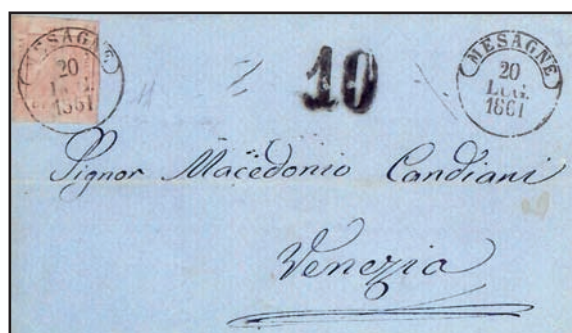 MESAGNE
20
1861
10
MESAGNE
20
LUG.
1861
Signor Macedonio Candiani
Venezia